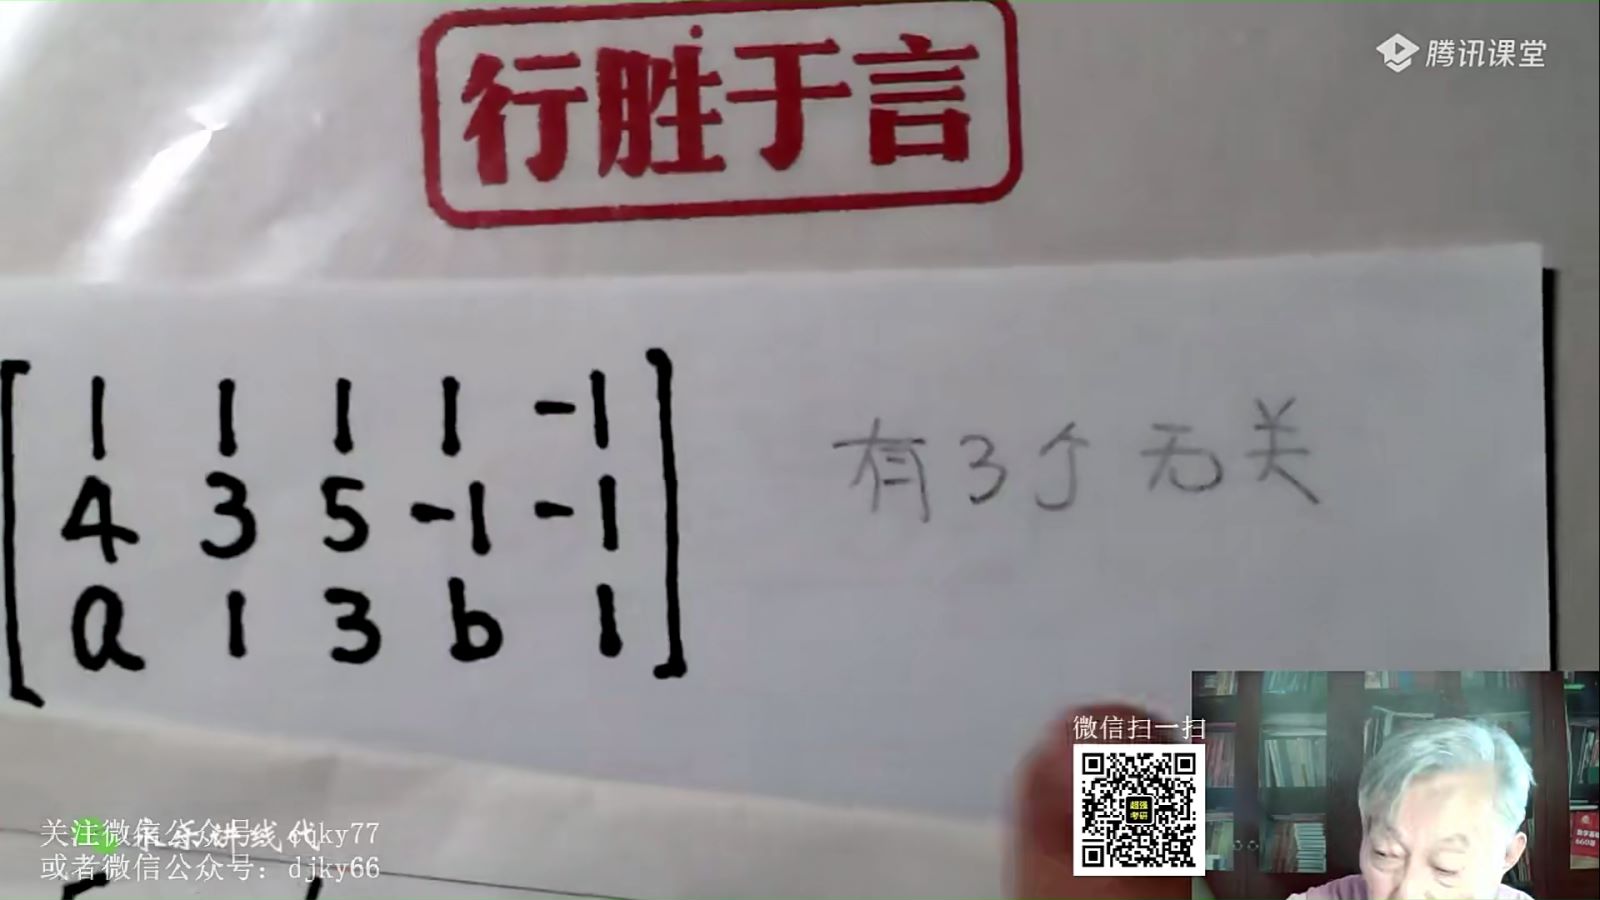 行胜于言
腾讯课堂
1 1 1 1 -1
4 3 5 -1 -1
a 1 3 b 1
有3个无关
微信扫一扫
超强
考研
关注微信公众号：djky77
永乐讲线代
或者微信公众号：djky66